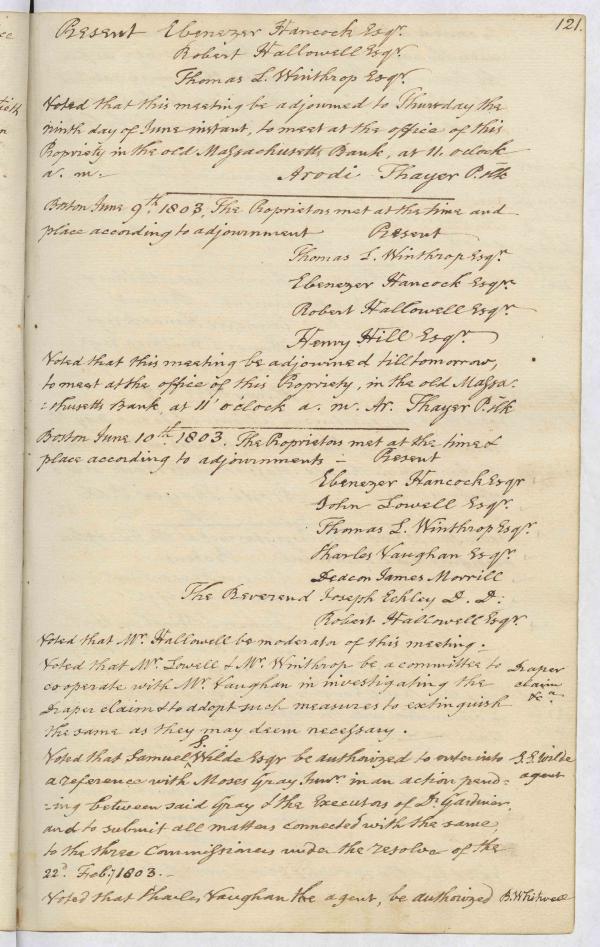 121.
Present Ebenezer Hancock Esqr.
Robert Hallowell Esqr.
Thomas L. Winthrop Esqr.
Voted that this meeting be adjourned to Thursday the
ninth day of June instant, to meet at the office of this
Propriety in the old Massachusetts Bank, at 11. oclock
a. m. - Arodi Thayer P. Clk
Boston June 9th. 1803. The Proprietors met at the time and
place according to adjournment Present
Thomas L. Winthrop Esqr.
Ebenezer Hancock Esqr.
Robert Hallowell Esqr.
Henry Hill Esqr.
Voted that this meeting be adjourned till tomorrow,
to meet at the office of this Propriety, in the old Massa-
:chusetts Bank, at 11 o'clock a. m. Ar. Thayer P. Clk
Boston June 10th. 1803. The Proprietors met at the time &
place according to adjournments - Present
Ebenezer Hancock Esqr
John Lowell Esqr.
Thomas L. Winthrop Esqr.
Charles Vaughan Esqr.
Deacon James Morrill
The Reverend Joseph Eckley D. D.
Robert Hallowell Esqr
Voted that Mr. Hallowell be moderator of this meeting.
Voted that Mr. Lowell & Mr. Winthrop be a committee to
cooperate with Mr. Vaughan in investigating the
Draper claim & to adopt such measures to extinguish
the same as they may deem necessary.
Draper
claim
&ca.
Voted that Samuel S. Wilde Esqr be authorized to enter into
a reference with Moses Gray Junr. in an action pend=
:ing between said Gray & the Executors of Dr. Gardiner,
and to submit all matters connected with the same,
to the three Commissioners under the resolve of the
22d. Feby. 1803. -
S. S. Wilde
agent
Voted that Charles Vaughan the agent, be authorized
B. Whitwell